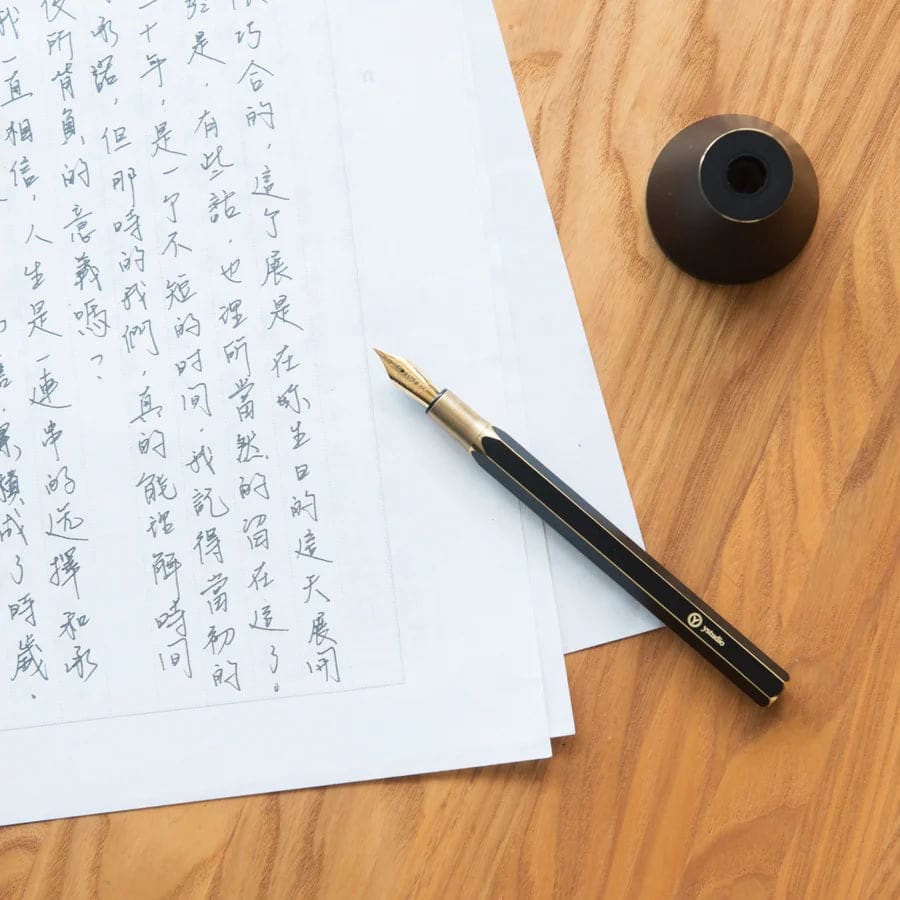 巧合的，這个展是在妳生日的這天展開
是，有些話，也理所當然的留在這了。
十年，是一个不短的时间，我記得當初的
承諾，但那時的我們，真的能理解時间
所背負的意義嗎？
我一直相信，人生是一連串的选擇和承
累積成了時歲．
ystudio